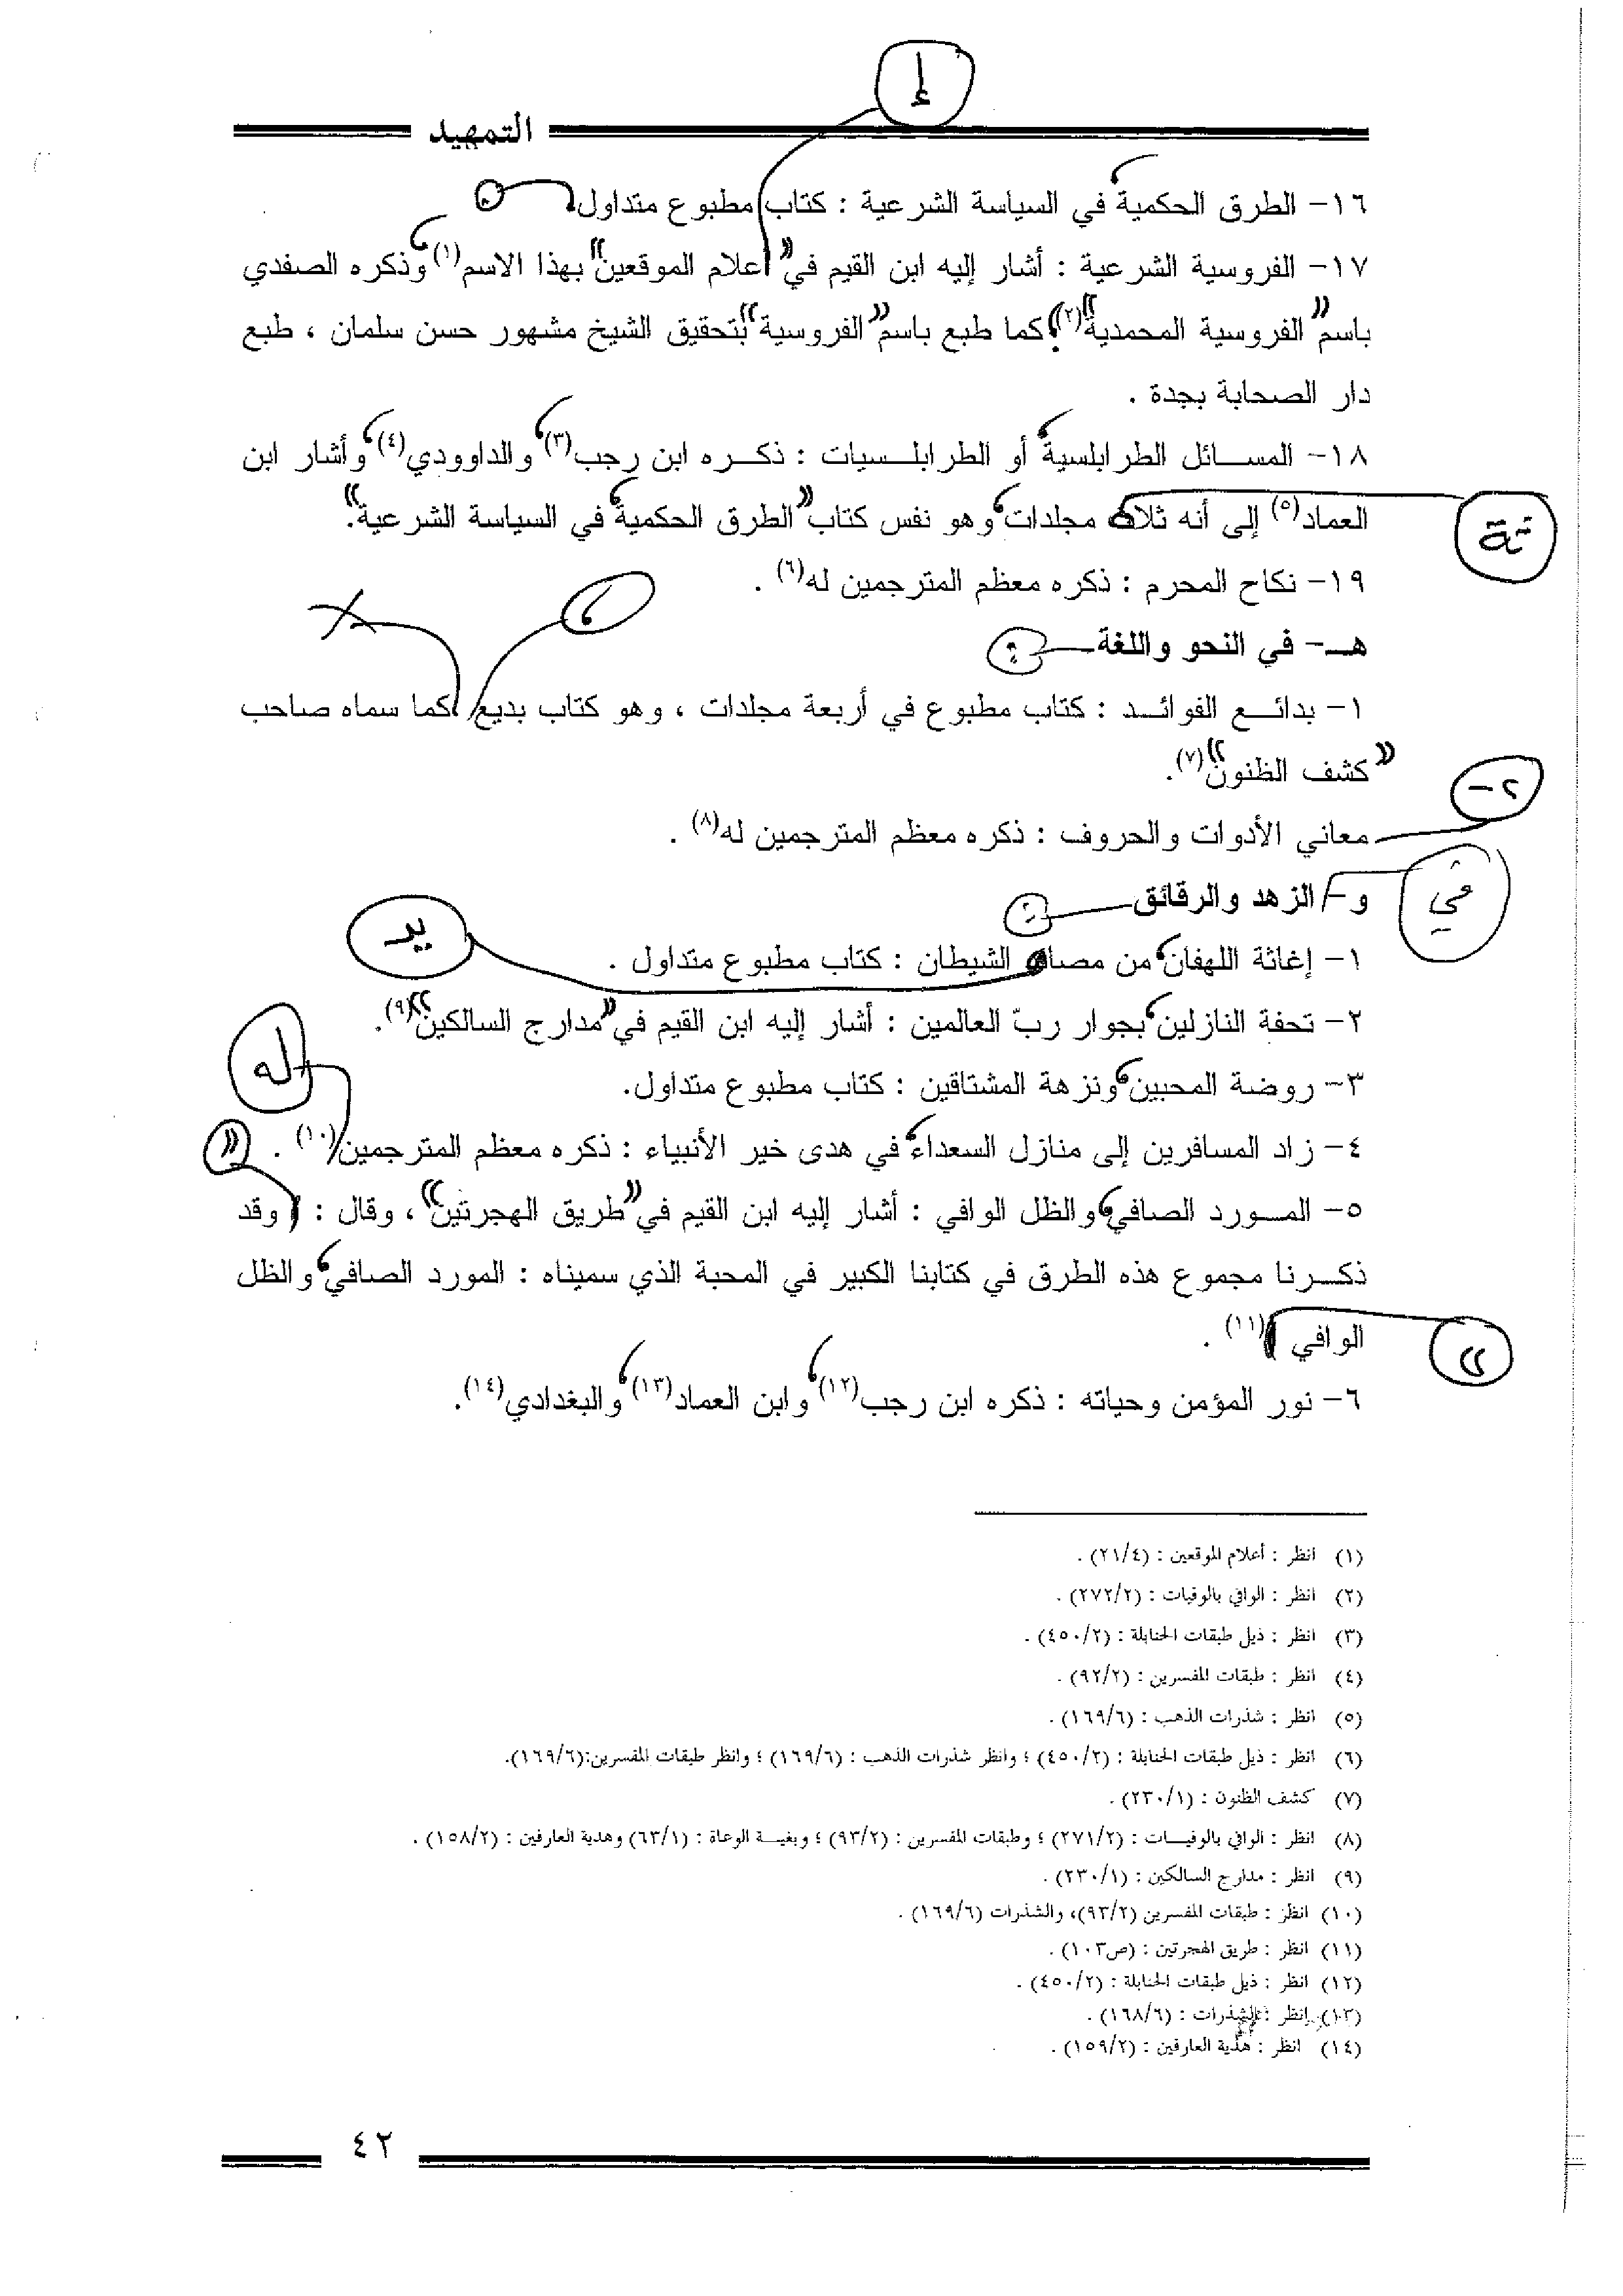 إ
التمهيد
١٦- الطرق الحكمية في السياسة الشرعية : كتاب مطبوع متداول.
١٧- الفروسية الشرعية : أشار إليه ابن القيم في "أعلام الموقعين" بهذا الاسم(١)، وذكره الصفدي
باسم "الفروسية المحمدية"(٢). كما طبع باسم "الفروسية" بتحقيق الشيخ مشهور حسن سلمان ، طبع
دار الصحابة بجدة .
١٨- المسائل الطرابلسية، أو الطرابلسيات : ذكره ابن رجب(٣)، والداوودي(٤)، وأشار ابن
العماد(٥) إلى أنه ثلاث مجلدات، وهو نفس كتاب "الطرق الحكمية، في السياسة الشرعية".
ثة
١٩- نكاح المحرم : ذكره معظم المترجمين له(٦) .
،
هـ- في النحو واللغة
:
١- بدائع الفوائد : كتاب مطبوع في أربعة مجلدات ، وهو كتاب بديع، كما سماه صاحب
"كشف الظنون"(٧).
٢-
معاني الأدوات والحروف : ذكره معظم المترجمين له(٨) .
في
و- الزهد والرقائق
:
يد
١- إغاثة اللهفان، من مصا الشيطان : كتاب مطبوع متداول .
٢- تحفة النازلين، بجوار ربّ العالمين : أشار إليه ابن القيم في "مدارج السالكين"(٩).
له
٣- روضة المحبين، ونزهة المشتاقين : كتاب مطبوع متداول.
٤- زاد المسافرين إلى منازل السعداء، في هدى خير الأنبياء : ذكره معظم المترجمين(١٠) .
"
٥- المورد الصافي، والظل الوافي : أشار إليه ابن القيم في "طريق الهجرتين" ، وقال : ( وقد
ذكرنا مجموع هذه الطرق في كتابنا الكبير في المحبة الذي سميناه : المورد الصافي، والظل
الوافي )(١١) .
"
٦- نور المؤمن وحياته : ذكره ابن رجب(١٢)، وابن العماد(١٣)، والبغدادي(١٤).
(١) انظر : أعلام الموقعين : (٢١/٤) .
(٢) انظر : الوافي بالوفيات : (٢٧٢/٢) .
(٣) انظر : ذيل طبقات الحنابلة : (٤٥٠/٢) .
(٤) انظر : طبقات المفسرين : (٩٢/٢) .
(٥) انظر : شذرات الذهب : (١٦٩/٦) .
(٦) انظر : ذيل طبقات الحنابلة : (٤٥٠/٢) ؛ وانظر شذرات الذهب : (١٦٩/٦) ؛ وانظر طبقات المفسرين:(١٦٩/٦).
(٧) كشف الظنون : (٢٣٠/١) .
(٨) انظر : الوافي بالوفيات : (٢٧١/٢) ؛ وطبقات المفسرين : (٩٣/٢) ؛ وبغية الوعاة : (٦٣/١) وهدية العارفين : (١٥٨/٢) .
(٩) انظر : مدارج السالكين : (٢٣٠/١) .
(١٠) انظر : طبقات المفسرين (٩٣/٢)، والشذرات (١٦٩/٦) .
(١١) انظر : طريق الهجرتين : (ص١٠٣) .
(١٢) انظر : ذيل طبقات الحنابلة : (٤٥٠/٢) .
(١٣) انظر : الشذرات : (١٦٨/٦) .
(١٤) انظر : هدية العارفين : (١٥٩/٢) .
٤٢